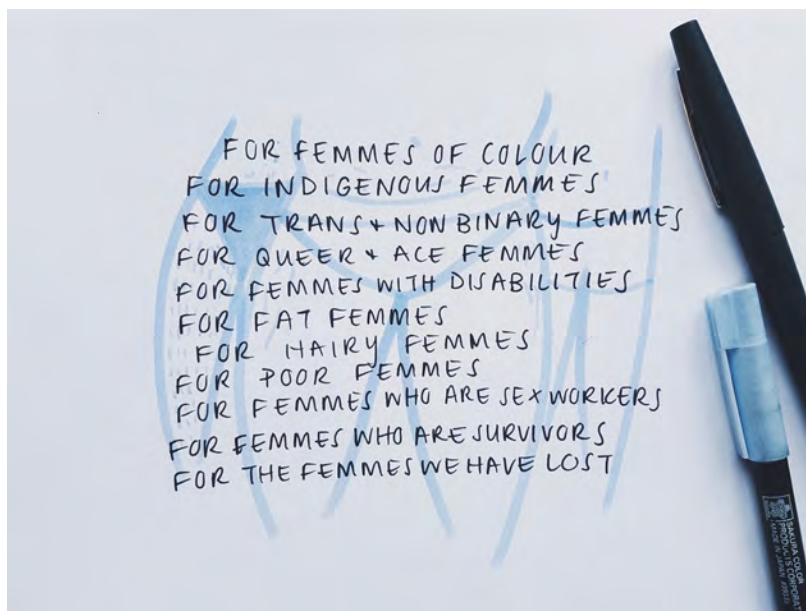 FOR FEMMES OF COLOUR
FOR INDIGENOUS FEMMES
FOR TRANS + NON BINARY FEMMES
FOR QUEER + ACE FEMMES
FOR FEMMES WITH DISABILITIES
FOR FAT FEMMES
FOR HAIRY FEMMES
FOR POOR FEMMES
FOR FEMMES WHO ARE SEX WORKERS
FOR FEMMES WHO ARE SURVIVORS
FOR THE FEMMES WE HAVE LOST
SAKURA COLOR
PRODUCTS CORPORATION
MADE IN JAPAN